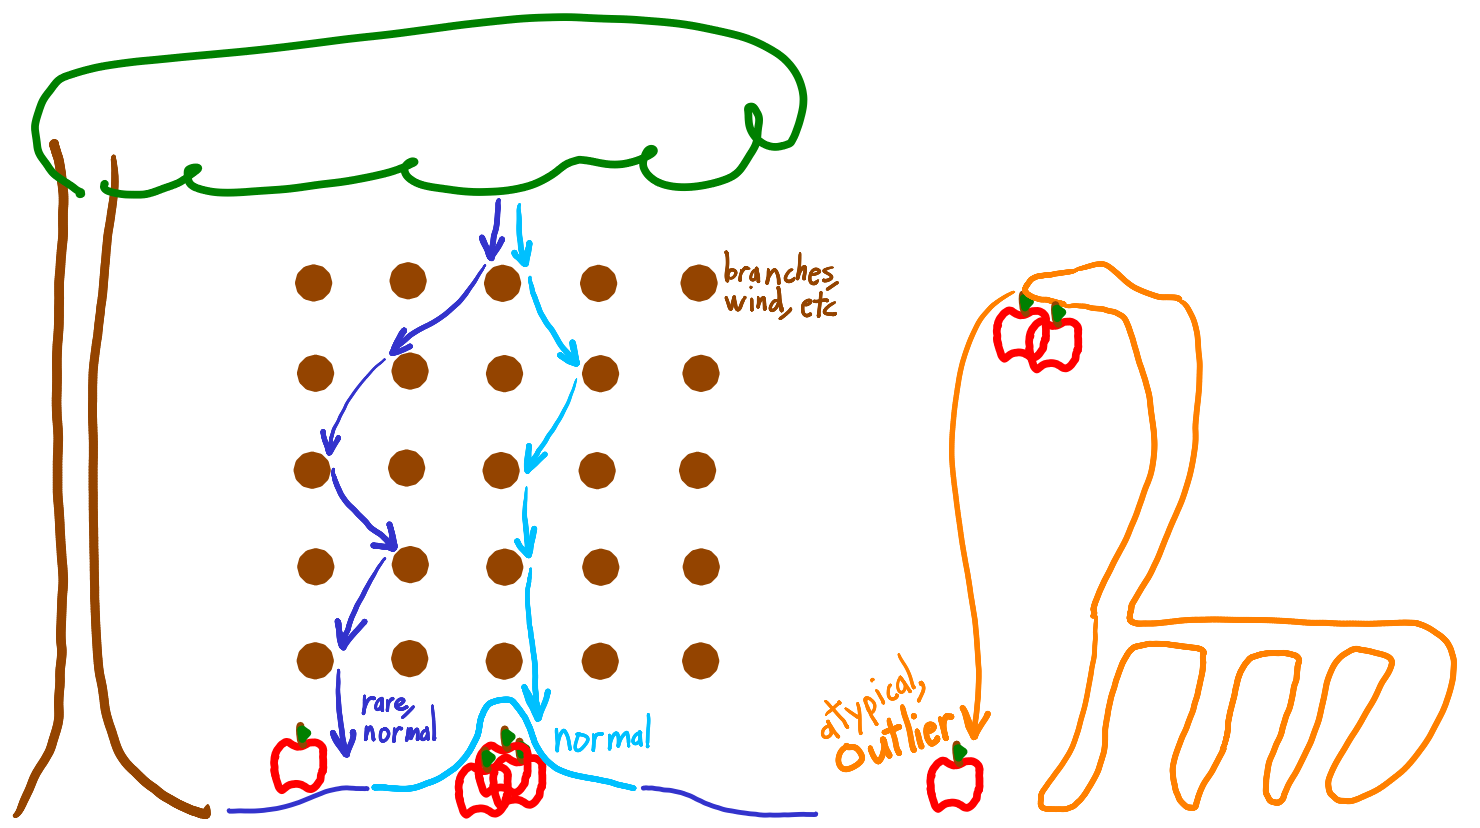 branches,
wind, etc
rare,
normal
normal
atypical,
outlier